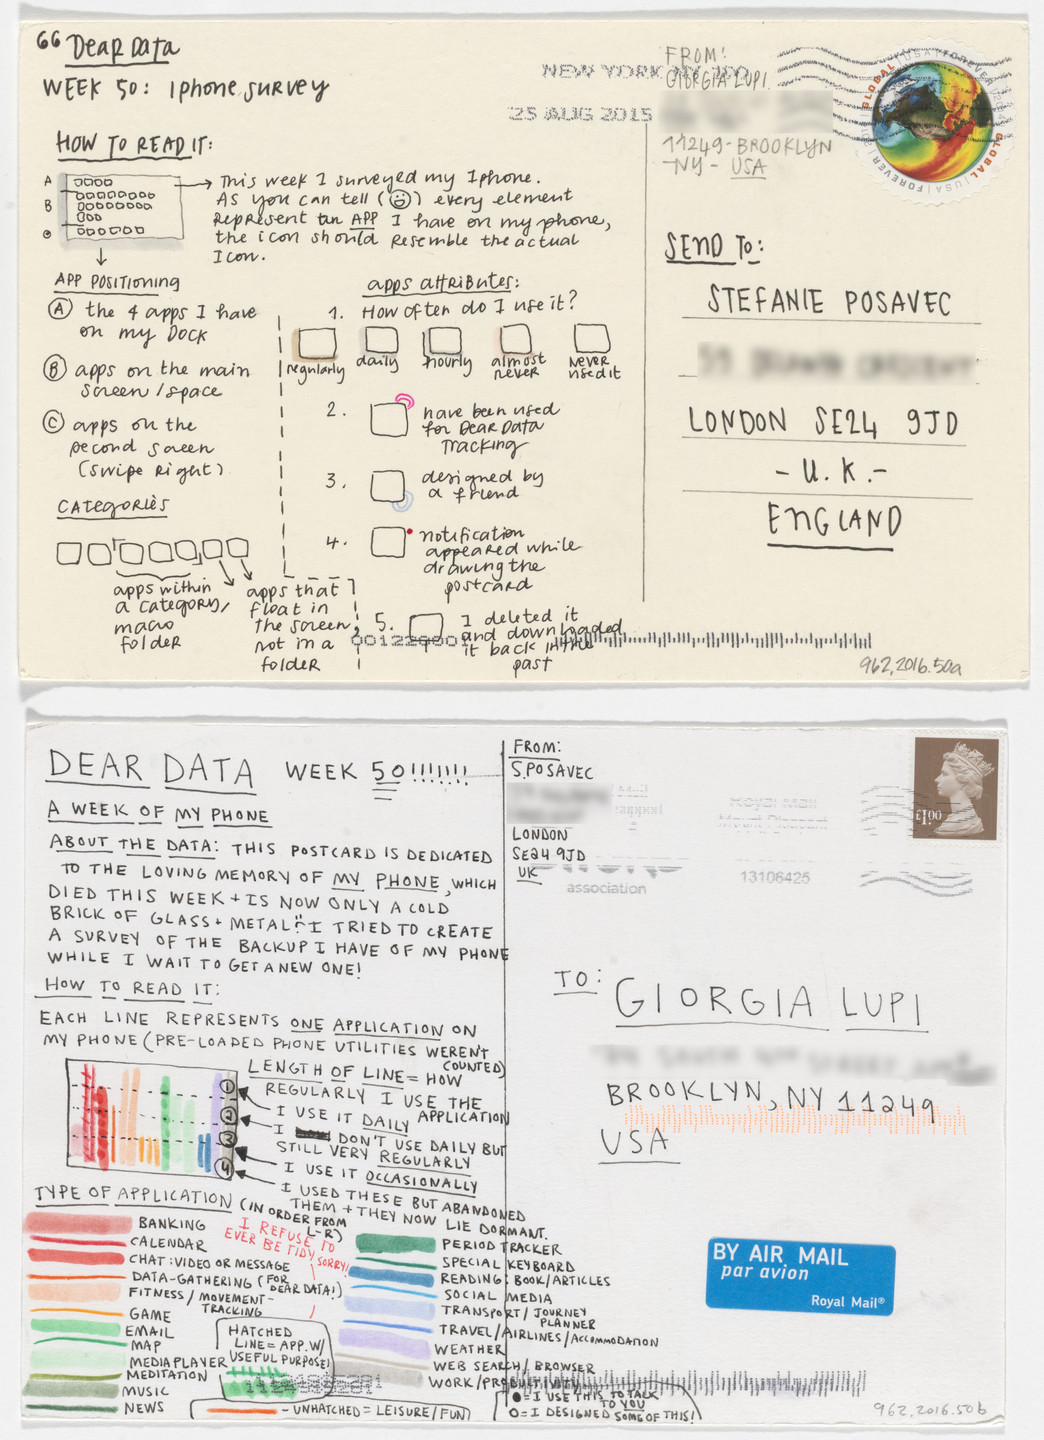 66 Dear Data
WEEK 50: Iphone survey
HOW TO READ IT:
A
B
This week I surveyed my Iphone.
As you can tell (☺) every element
represent an APP I have on my phone,
the icon should resemble the actual
Icon.
APP POSITIONING
A the 4 apps I have
on my DOCK
B apps on the main
screen/space
C apps on the
second screen
(swipe right)
CATEGORIES
apps within
a category/
macro
folder
apps that
float in
the screen,
not in a
folder
apps attributes:
1. How often do I use it?
regularly daily hourly almost never never used it
2. have been used
for Dear Data
tracking
3. designed by
a friend
4. notification
appeared while
drawing the
postcard
5. I deleted it
and downloaded
it back in the
past
NEW YORK NY 100
25 AUG 2015
FROM:
GIORGIA LUPI
11249 - BROOKLYN
NY - USA
GLOBAL | USA | FOREVER
GLOBAL | USA | FOREVER
SEND TO:
STEFANIE POSAVEC
LONDON SE24 9JD
- U.K. -
ENGLAND
962.2016.50a
DEAR DATA WEEK 50!!!!!!!
A WEEK OF MY PHONE
ABOUT THE DATA: THIS POSTCARD IS DEDICATED
TO THE LOVING MEMORY OF MY PHONE, WHICH
DIED THIS WEEK + IS NOW ONLY A COLD
BRICK OF GLASS + METAL I TRIED TO CREATE
A SURVEY OF THE BACKUP I HAVE OF MY PHONE
WHILE I WAIT TO GET A NEW ONE!
HOW TO READ IT:
EACH LINE REPRESENTS ONE APPLICATION ON
MY PHONE (PRE-LOADED PHONE UTILITIES WEREN'T
COUNTED)
LENGTH OF LINE = HOW
REGULARLY I USE THE
APPLICATION
1
2
3
4
I USE IT DAILY
I DON'T USE DAILY BUT
STILL VERY REGULARLY
I USE IT OCCASIONALLY
I USED THESE BUT ABANDONED
THEM + THEY NOW LIE DORMANT.
TYPE OF APPLICATION (IN ORDER FROM
L-R)
I REFUSE TO
EVER BE TIDY, SORRY!
BANKING
CALENDAR
CHAT: VIDEO OR MESSAGE
DATA-GATHERING (FOR
DEAR DATA!)
FITNESS/MOVEMENT-
TRACKING
GAME
EMAIL
MAP
MEDIA PLAYER
MEDITATION
MUSIC
NEWS
PERIOD TRACKER
SPECIAL KEYBOARD
READING: BOOK/ARTICLES
SOCIAL MEDIA
TRANSPORT/JOURNEY
PLANNER
TRAVEL/AIRLINES/ACCOMMODATION
WEATHER
WEB SEARCH/BROWSER
WORK/PRODUCTIVITY
HATCHED
LINE = APP W/
USEFUL PURPOSE
- UNHATCHED = LEISURE/FUN
= I USE THIS TO TALK
TO YOU
O = I DESIGNED SOME OF THIS!
FROM:
S. POSAVEC
LONDON
SE24 9JD
UK
association
Royal Mail
Mount Pleasant
13106425
£1.00
TO: GIORGIA LUPI
BROOKLYN, NY 11249
USA
BY AIR MAIL
par avion
Royal Mail®
962.2016.50b